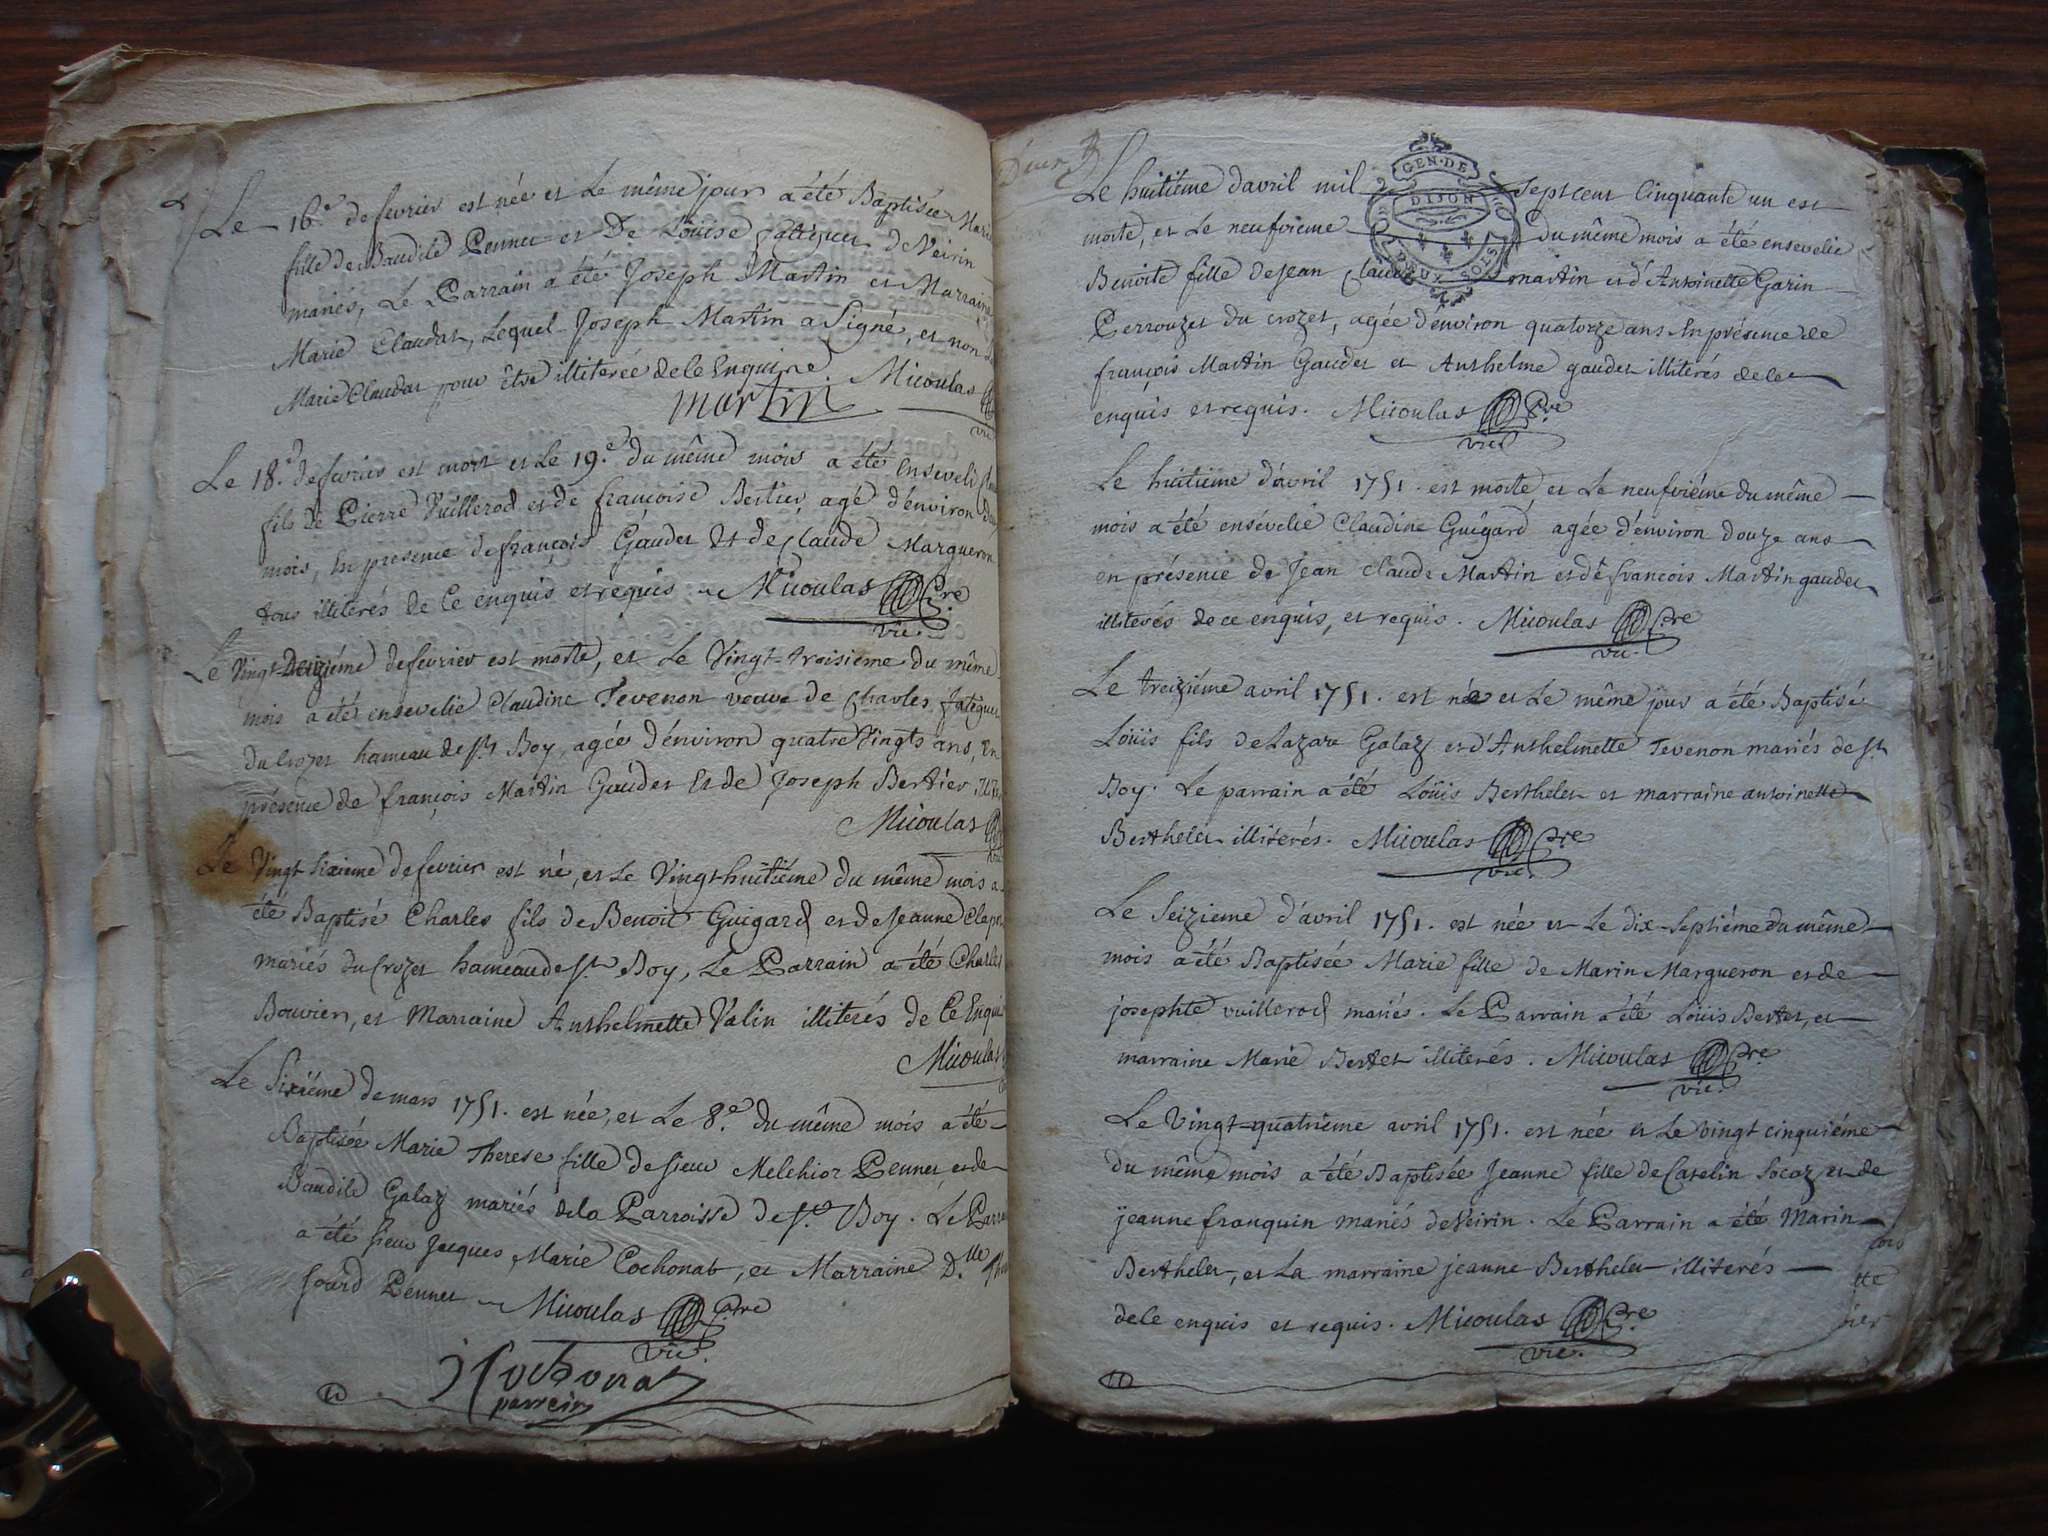 Le 16.e de fevrier est née et Le même jour a été Baptisée Marie
fille de Baudile Pennet et De Loüise fatiguet de Veirin
mariés, Le Parrain a été Joseph Martin et Marraine
Marie Claudat, Lequel Joseph Martin a Signé, et non
Marie Claudat pour être illiterée de Ce Enquise
martin Micoulas
vic
Le 18.e de fevrier est mort et Le 19.e du même mois a été Enseveli
fils de Pierre Vuillerod et de françoise Bertier, agé d'énviron
mois, En presence de françois Gaudet Et de Claude Margueron
tous illiterés de Ce enquis et requis. Micoulas Pre
vic.
Le Vingt-Deuziéme de fevrier est morte, et Le Vingt-troisieme du même
mois a été ensevelie Claudine Tevenon veuve de Charles fatiguet
du Crozet hameau de st Boy, agée d'énviron quatre Vingts ans, En
présence de françois Martin Gaudet Et de Joseph Bertier,
Micoulas
Le Vingt sixieme de fevrier est né, et Le Vingt-huitiéme du même mois a
été Baptisé Charles fils de Benoit Guigard et de Jeanne
mariés du Crozet hameau de st Boy, Le Parrain a été Charles
Bouvier, et Marraine Anthelmette Valin illiterés de Ce Enquis
Micoulas
Le Sixiéme de mars 1751. est née, et Le 8.e du même mois a été
Baptisée Marie Therese fille de sieur Melchior Pennet et de
Baudile Galaz mariés de la Parroisse de st Boy. Le Parrain
a été sieur Jacques Marie Cochonat, et Marraine D.lle
Pennet Micoulas Pre
vic.
Cochonat
parrein
GEN. DE
DIJON
DEUX SOLS
Le huitiéme d'avril mil sept cent Cinquante un est
morte, et Le neufvieme du même mois a été ensevelie
Benoite fille de Jean Claude martin et d'Antoinette Garin
Perrouzet du crozet, agée d'énviron quatorze ans En présence de
françois Martin Gaudet et Anthelme gaudet illiterés de Ce
enquis et requis. Micoulas Pre
vic.
Le huitieme d'avril 1751. est morte et Le neufviéme du même
mois a été ensévelie Claudine Guigard agée d'énviron douze ans
en présence de Jean Claude Martin et de françois Martin gaudet
illiterés de ce enquis, et requis. Micoulas Pre
vic.
Le treiziéme avril 1751. est né et Le même jour a été Baptisé
Loüis fils de Lazare Galaz et d'Anthelmette Tevenon mariés de st
Boy. Le parrain a été Loüis Berthelet et marraine antoinette
Berthelet illiterés. Micoulas Pre
vic.
Le Seizieme d'avril 1751. est née et Le dix-Septiéme du même
mois a été Baptisée Marie fille de Marin Margueron et de
josephte vuillerod mariés. Le Parrain a été Loüis Bertet, et
marraine Marie Bertet illiterés. Micoulas Pre
vic.
Le Vingt quatrieme avril 1751. est née et Le vingt cinquiéme
du même mois a été Baptisée Jeanne fille de Catelin Socaz et de
jeanne franquin mariés de Veirin. Le Parrain a été Marin
Berthelet, et La marraine jeanne Berthelet illiterés
de Ce enquis et requis. Micoulas Pre.
vic.